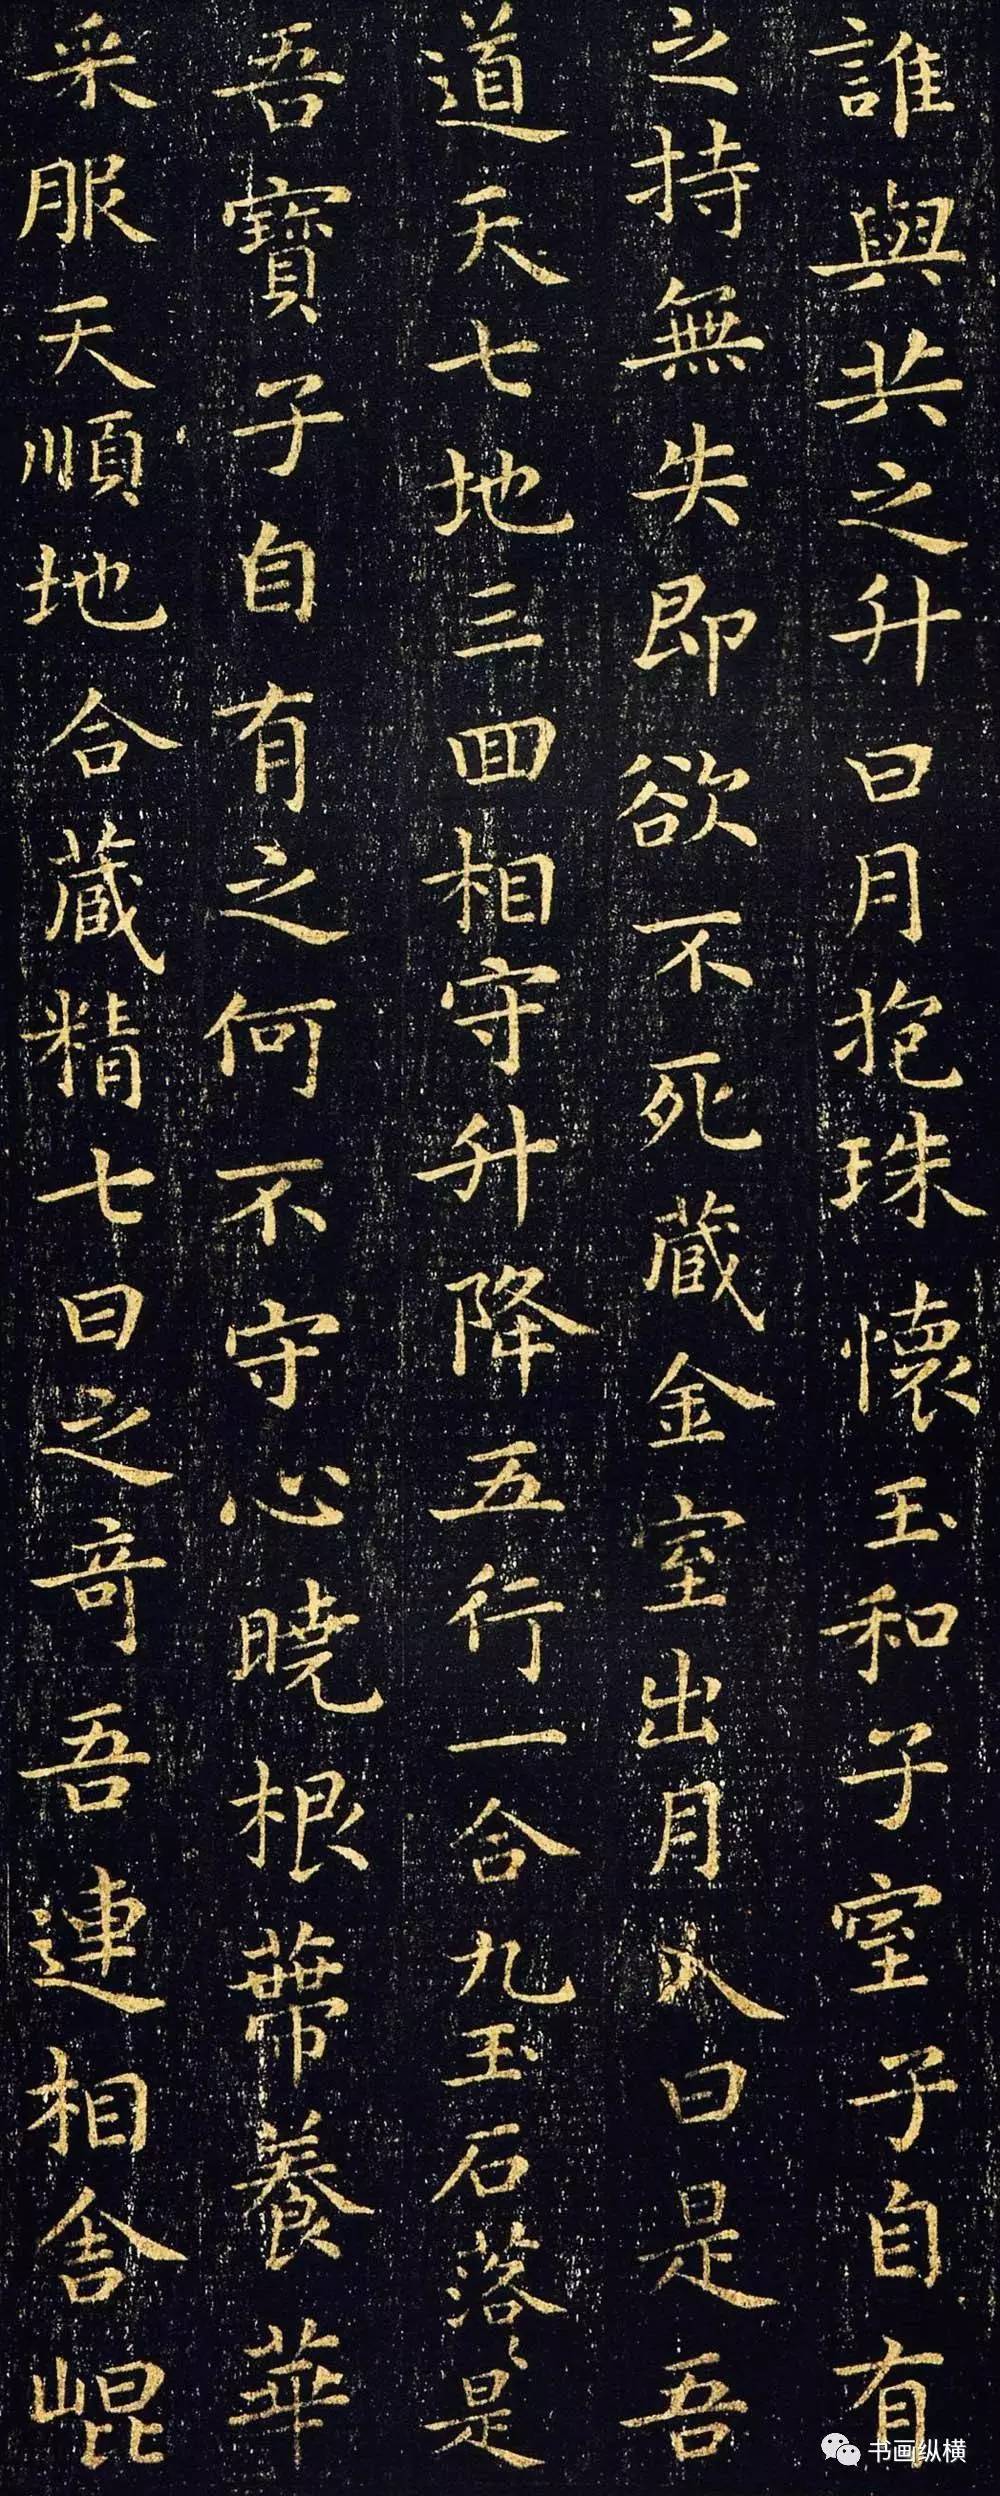 誰與共之升日月抱珠懷玉和子室子自有
之持無失即欲不死藏金室出月入日是吾
道天七地三回相守升降五行一合九玉石落〻是
吾寶子自有之何不守心曉根蒂養華
采服天順地合藏精七日之奇吾連相舍崐
书画纵横